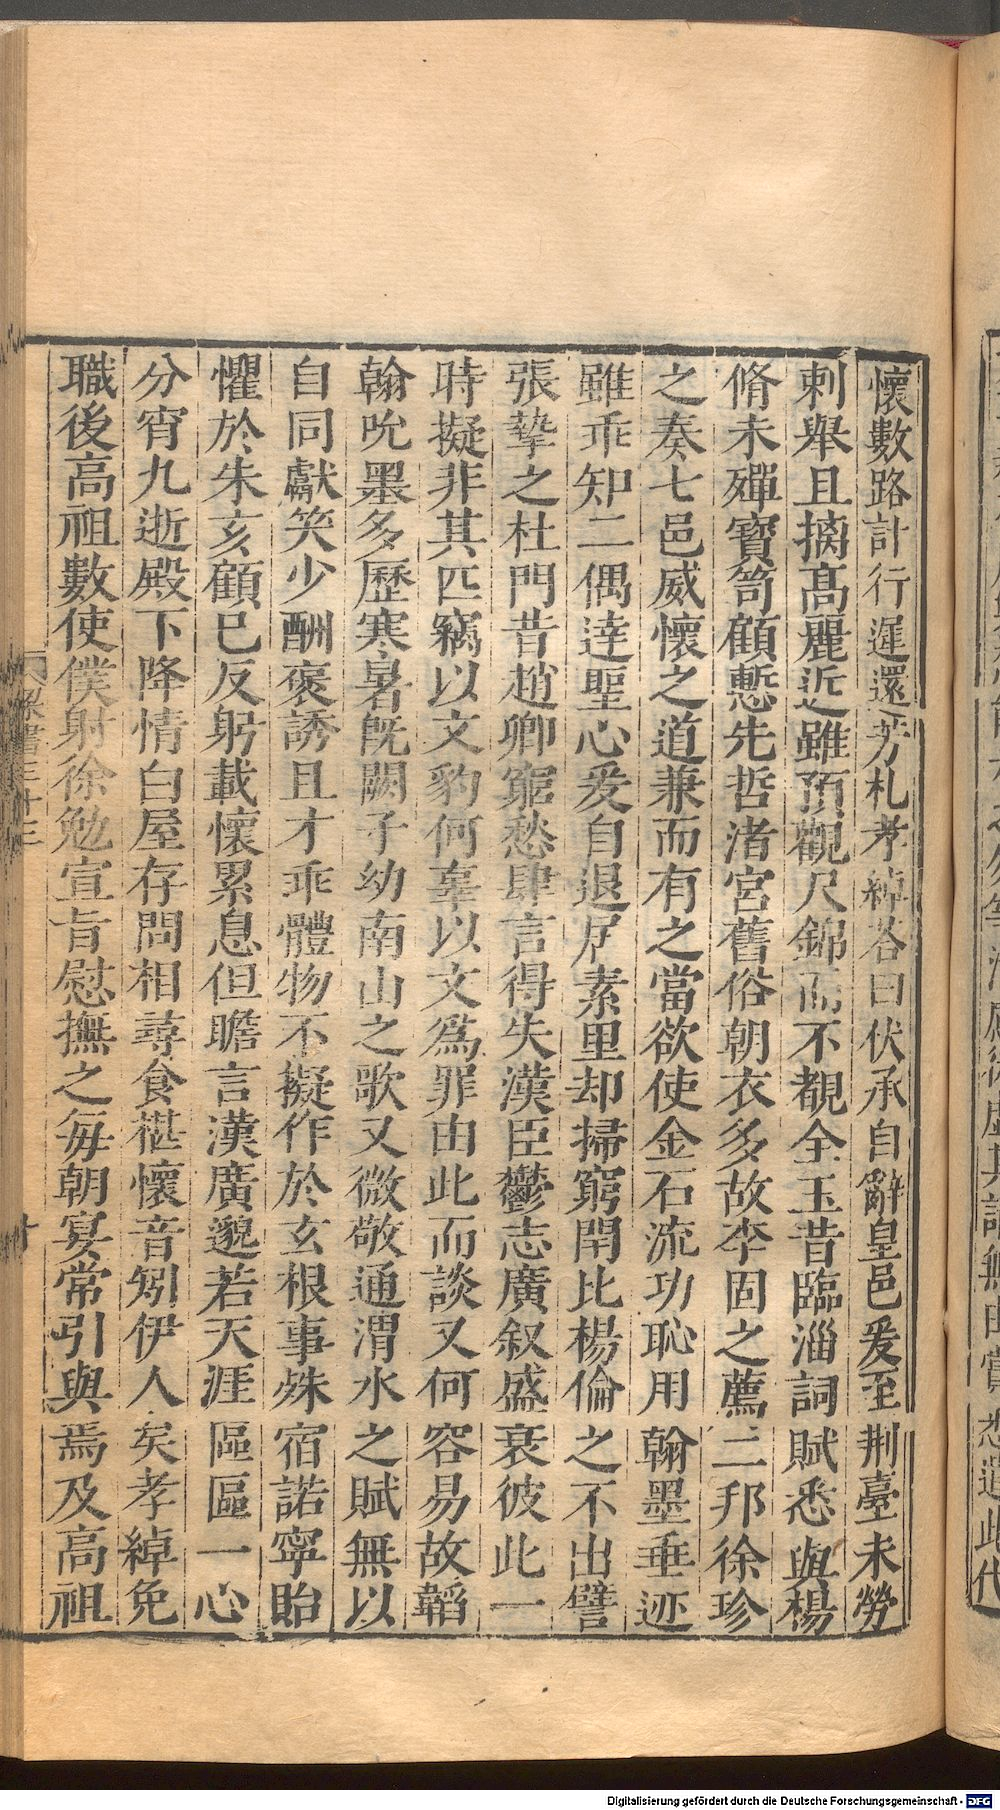 懷數路計行遲還芳札孝綽答曰伏承自辭皇邑爰至荆臺未勞
刺舉且摛高麗近雖預觀尺錦而不覩全玉昔臨淄詞賦悉與楊
脩未殫寶笥顧慙先哲渚宮舊俗朝衣多故李固之薦二邦徐珍
之奏七邑威懷之道兼而有之當欲使金石流功恥用翰墨垂迹
雖乖知二偶達聖心爰自退居素里却掃窮閈比楊倫之不出譬
張摯之杜門昔趙卿窮愁肆言得失漢臣鬱志廣叙盛衰彼此一
時擬非其匹竊以文豹何辜以文爲罪由此而談又何容易故韜
翰吮墨多歷寒暑旣闕子幼南山之歌又微敬通渭水之賦無以
自同獻笑少酬褒誘且才乖體物不擬作於玄根事殊宿諾寧貽
懼於朱亥顧已反躬載懷累息但瞻言漢廣邈若天涯區區一心
分宵九逝殿下降情白屋存問相尋食椹懷音矧伊人矣孝綽免
職後高祖數使僕射徐勉宣旨慰撫之每朝宴常引與焉及高祖
梁書三十三
Digitalisierung gefördert durch die Deutsche Forschungsgemeinschaft - DFG